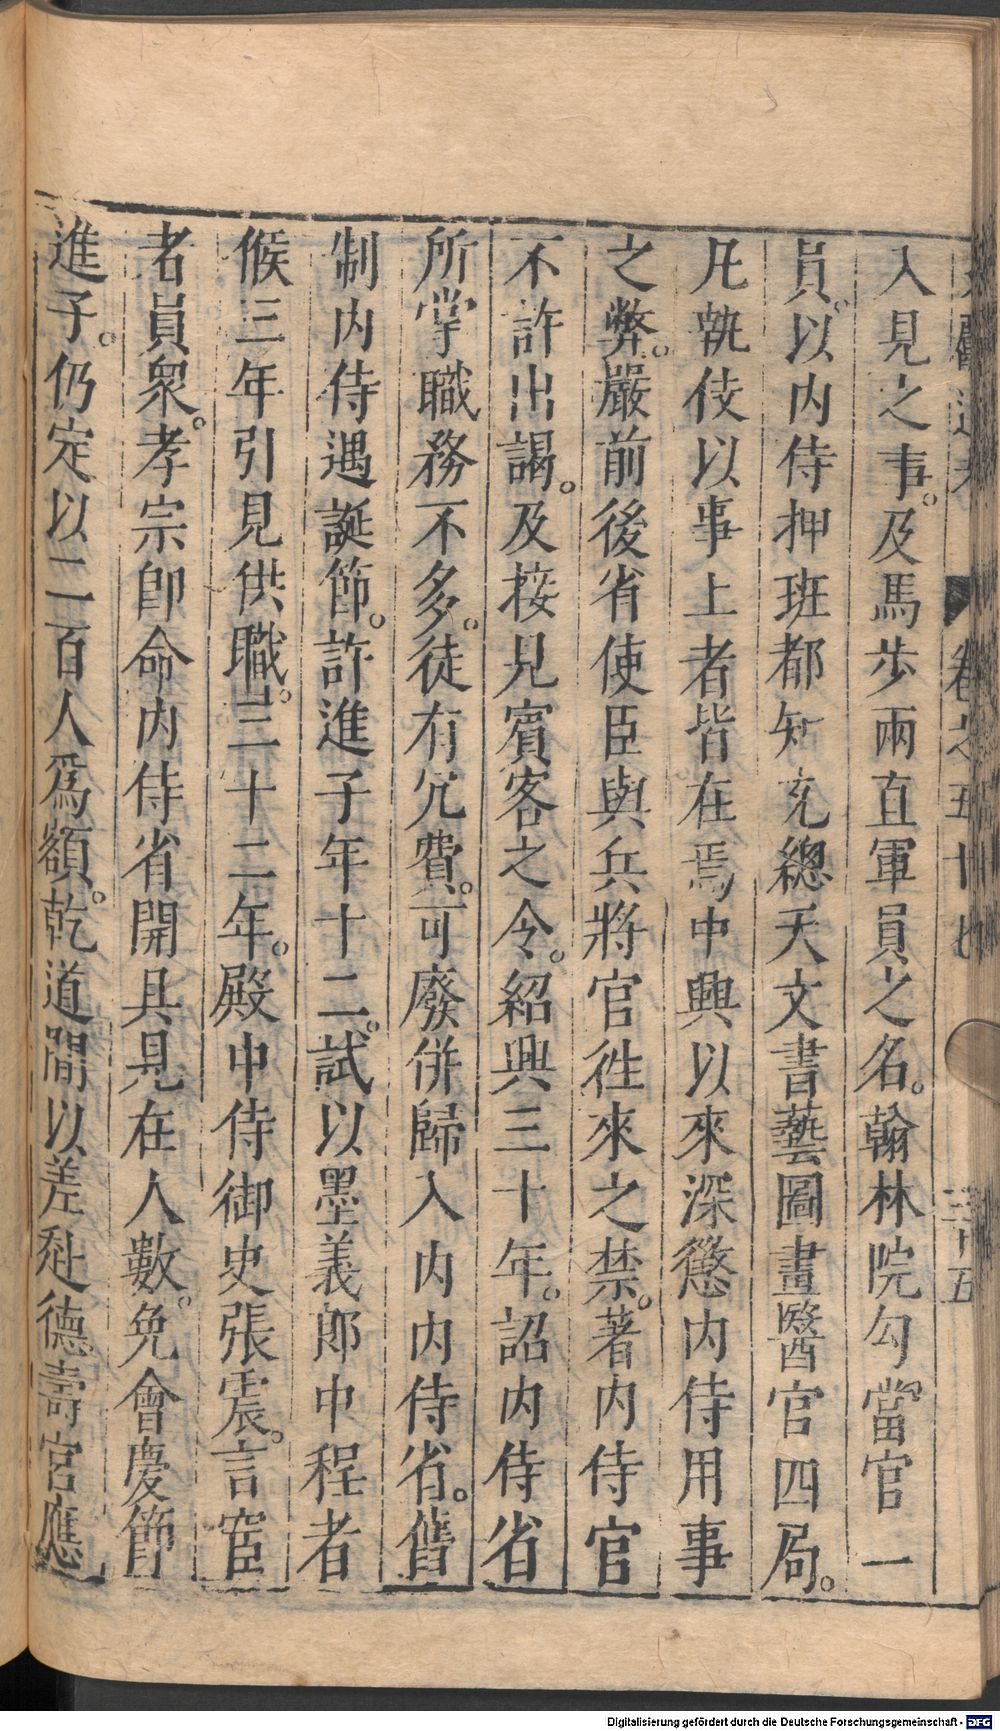 卷之五十七
三十五
入見之事。及馬步兩直軍員之名。翰林院勾當官一
員。以内侍押班都知充總天文書藝圖畫醫官四局。
凡執伎以事上者皆在焉中興以來深懲内侍用事
之弊。嚴前後省使臣與兵將官徃來之禁。著内侍官
不許出謁。及接見賓客之令。紹興三十年。詔内侍省
所掌職務不多。徒有冗費。可廢併歸入内内侍省。舊
制内侍遇誕節。許進子年十二。試以墨義郎中程者
候三年引見供職。三十二年。殿中侍御史張震。言宦
者員衆。孝宗卽命内侍省開具見在人數。免會慶節
進子。仍定以二百人爲額。乾道間以差赴德壽宮應
Digitalisierung gefördert durch die Deutsche Forschungsgemeinschaft - DFG